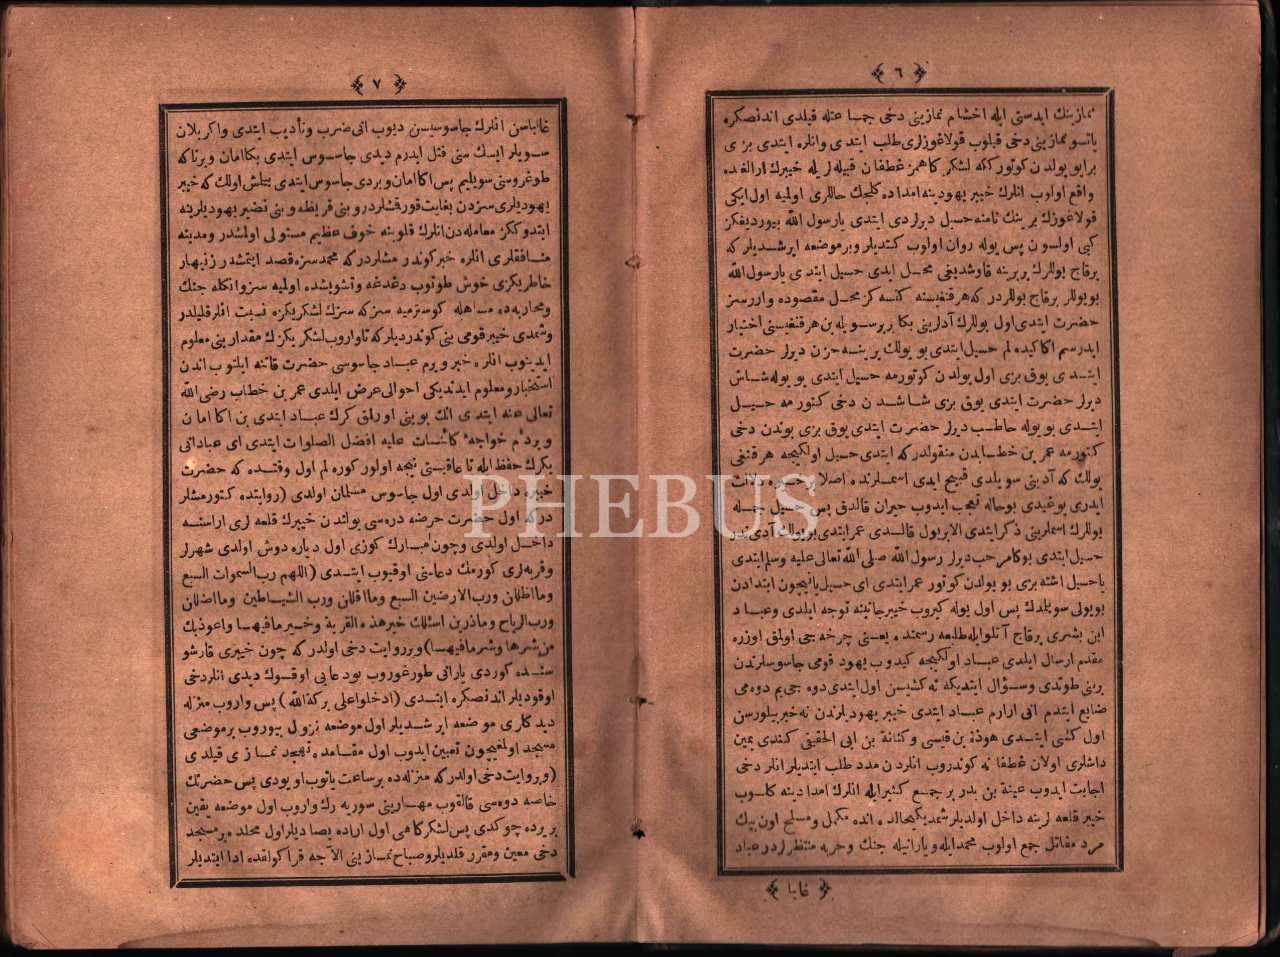 ٦
نمازینك ابدستی ایله اخشام نمازینی دخی جماعتله قیلدی اندنصكره
یاتسو نمازینی دخی قیلوب قولاغوزلری طلب ایتدی وانلره ایتدی بزی
بر ایو یولدن كوتورككه لشكركاهمز غطفان قبیله لریله خیبرك ارالغنده
واقع اولوب انلرك خیبر یهودینه امداده كلمك حاللری اولمیه اول ایكی
قولاغوزك برینك نامنه حسیل دیرلردی ایتدی یارسول الله بیوردیغكز
كبی اولسون پس یوله روان اولوب كتدیلر وبر موضعه ایرشدیلر كه
برقاچ یوللرك بربرینه قاوشدیغی محل ایدی حسیل ایتدی یارسول الله
بو یوللر برقاچ یوللردر كه هر قنغیسنه كتسه كز محل مقصوده واررسز
حضرت ایتدی اول یوللرك آدلرینی بكا برر سویله بن هر قنغیستی اختیار
ایدرسم اكا كیده لم حسیل ایتدی بو یولك برینه حزن دیرلر حضرت
ایتدی یوق بزی اول یولدن كوتورمه حسیل ایتدی بو یوله شاش
دیرلر حضرت ایتدی یوق بزی شاشدن دخی كتورمه حسیل
ایتدی بو یوله حاطب دیرلر حضرت ایتدی یوق بزی بوندن دخی
كتورمه عمر بن خطابدن منقولدر كه ایتدی حسیل اولكیجه هر قنغی
یولك كه آدینی سویلدی قبیح ایدی اسملرنده اصلا بر حسنه دلالت
ایدری یوغیدی بو حاله تعجب ایدوب حیران قالدق پس حسیل جمله
یوللرك اسملرینی ذكر ایتدی الا بر یول قالدی عمر ایتدی بو یولك آدی ندر
حسیل ایتدی بوكا مرحب دیرلر رسول الله صلی الله تعالی علیه وسلم ایتدی
یا حسیل اشته بزی بو یولدن كوتور عمر ایتدی ای حسیل یا نیچون ابتدادن
بو یولی سویلمدك پس اول یوله كیروب خیبر جانبنه توجه ایلدی وعباد
ابن بشری برقاچ آتلو ایله طلیعه رسمنده یعنی چرخه جی اولمق اوزره
مقدم ارسال ایلدی عباد اولكیجه كیدوب یهود قومی جاسوسلرندن
برینی طوتدی وسؤال ایتدیكه نه كشیسن اول ایتدی دوه جی یم دوه می
ضایع ایتدم انی ارارم عباد ایتدی خیبر یهودیلرندن نه خبر بیلورسن
اول كشی ایتدی هوذة بن قیسی وكنانة بن ابی الحقیق كندی یمین
داشلری اولان غطفانه كوندروب انلردن مدد طلب ایتدیلر انلر دخی
اجابت ایدوب عینة بن بدر بر جمع كثیر ایله انلرك امدادینه كلوب
خیبر قلعه لرینه داخل اولدیلر شمدیكیحالده انده مكمل ومسلح اون بیك
مرد مقاتل جمع اولوب محمد ایله ویارانیله جنك وحربه منتظرلردر عباد
غالبا
٧
غالباسن انلرك جاسوسیسن دیوب انی ضرب وتأدیب ایتدی واكر یلان
سویلر ایسك سنی قتل ایدرم دیدی جاسوس ایتدی بكا امان ویر تاكه
طوغروسنی سویلیم پس اكا امان ویردی جاسوس ایتدی بتلمش اولك كه خیبر
یهودیلری سزدن بغایت قورقمشلردر وبنی قریظه وبنی نضیر یهودیلرینه
ایتدوككز معامله دن انلرك قلوبنه خوف عظیم مستولی اولمشدر ومدینه
منافقلری انلره خبر كوندرمشلردر كه محمد سزه قصد ایتمشدر زنهار
خاطریكزی خوش طوتوب دغدغه وتشویشده اولمیه سز وانكله جنك
ومحاربه ده مساهله كوسترمیه سز كه سزك لشكریكزه نسبت انلر قلیلدر
وشمدی خیبر قومی بنی كوندردیلر كه تا واروب لشكریكزك مقدارینی معلوم
ایدینوب انلره خبر ویرم عباد جاسوسی حضرت قاتنه ایلتوب اندن
استخبار ومعلوم ایدندیكی احوالی عرض ایلدی عمر بن خطاب رضی الله
تعالی عنه ایتدی انك بوینی اورلق كرك عباد ایتدی بن اكا امان
ویردم خواجهٔ كائنات علیه افضل الصلوات ایتدی ای عباد انی
بكرك حفظ ایله تا عاقبتی نیجه اولور كوره لم اول وقتده كه حضرت
خیبره داخل اولدی اول جاسوس مسلمان اولدی (روایتده كتورمشلر
دركه اول حضرت حرضه دره سی یولندن خیبرك قلعه لری اراسنه
داخل اولدی وچون مبارك كوزی اول دیاره دوش اولدی شهرلر
وقریه لری كورمك دعاسنی اوقیوب ایتدی (اللهم رب السموات السبع
وما اظلان ورب الارضین السبع وما اقلان ورب الشیاطین وما اضلان
ورب الریاح وماذرین اسئلك خیر هذه القریة وخیر مافیها واعوذبك
من شرها وشر مافیها) وبر روایت دخی اولدر كه چون خیبری قارشو
سنده كوردی یارانی طورغوروب بو دعایی اوقوك دیدی انلر دخی
اوقودیلر اندنصكره ایتدی (ادخلوا علی بركة الله) پس واروب منزله
دیدكلری موضعه ایرشدیلر اول موضعه نزول بیوروب بر موضعی
مسجد اولمغیچون تعیین ایدوب اول مقامده تهجد نمازی قیلدی
(وبر روایت دخی اولدر كه منزله ده بر ساعت یاتوب اویودی پس حضرتك
خاصه دوه سی قالقوب مهارینی سوریه رك واروب اول موضعه یقین
بر یرده چوكدی پس لشكركاهی اول اراده یصادیلر اول محلده بر مسجد
دخی معین ومقرر قلدیلر وصباح نمازینی الاجه قراكولقده ادا ایتدیلر
PHEBUS